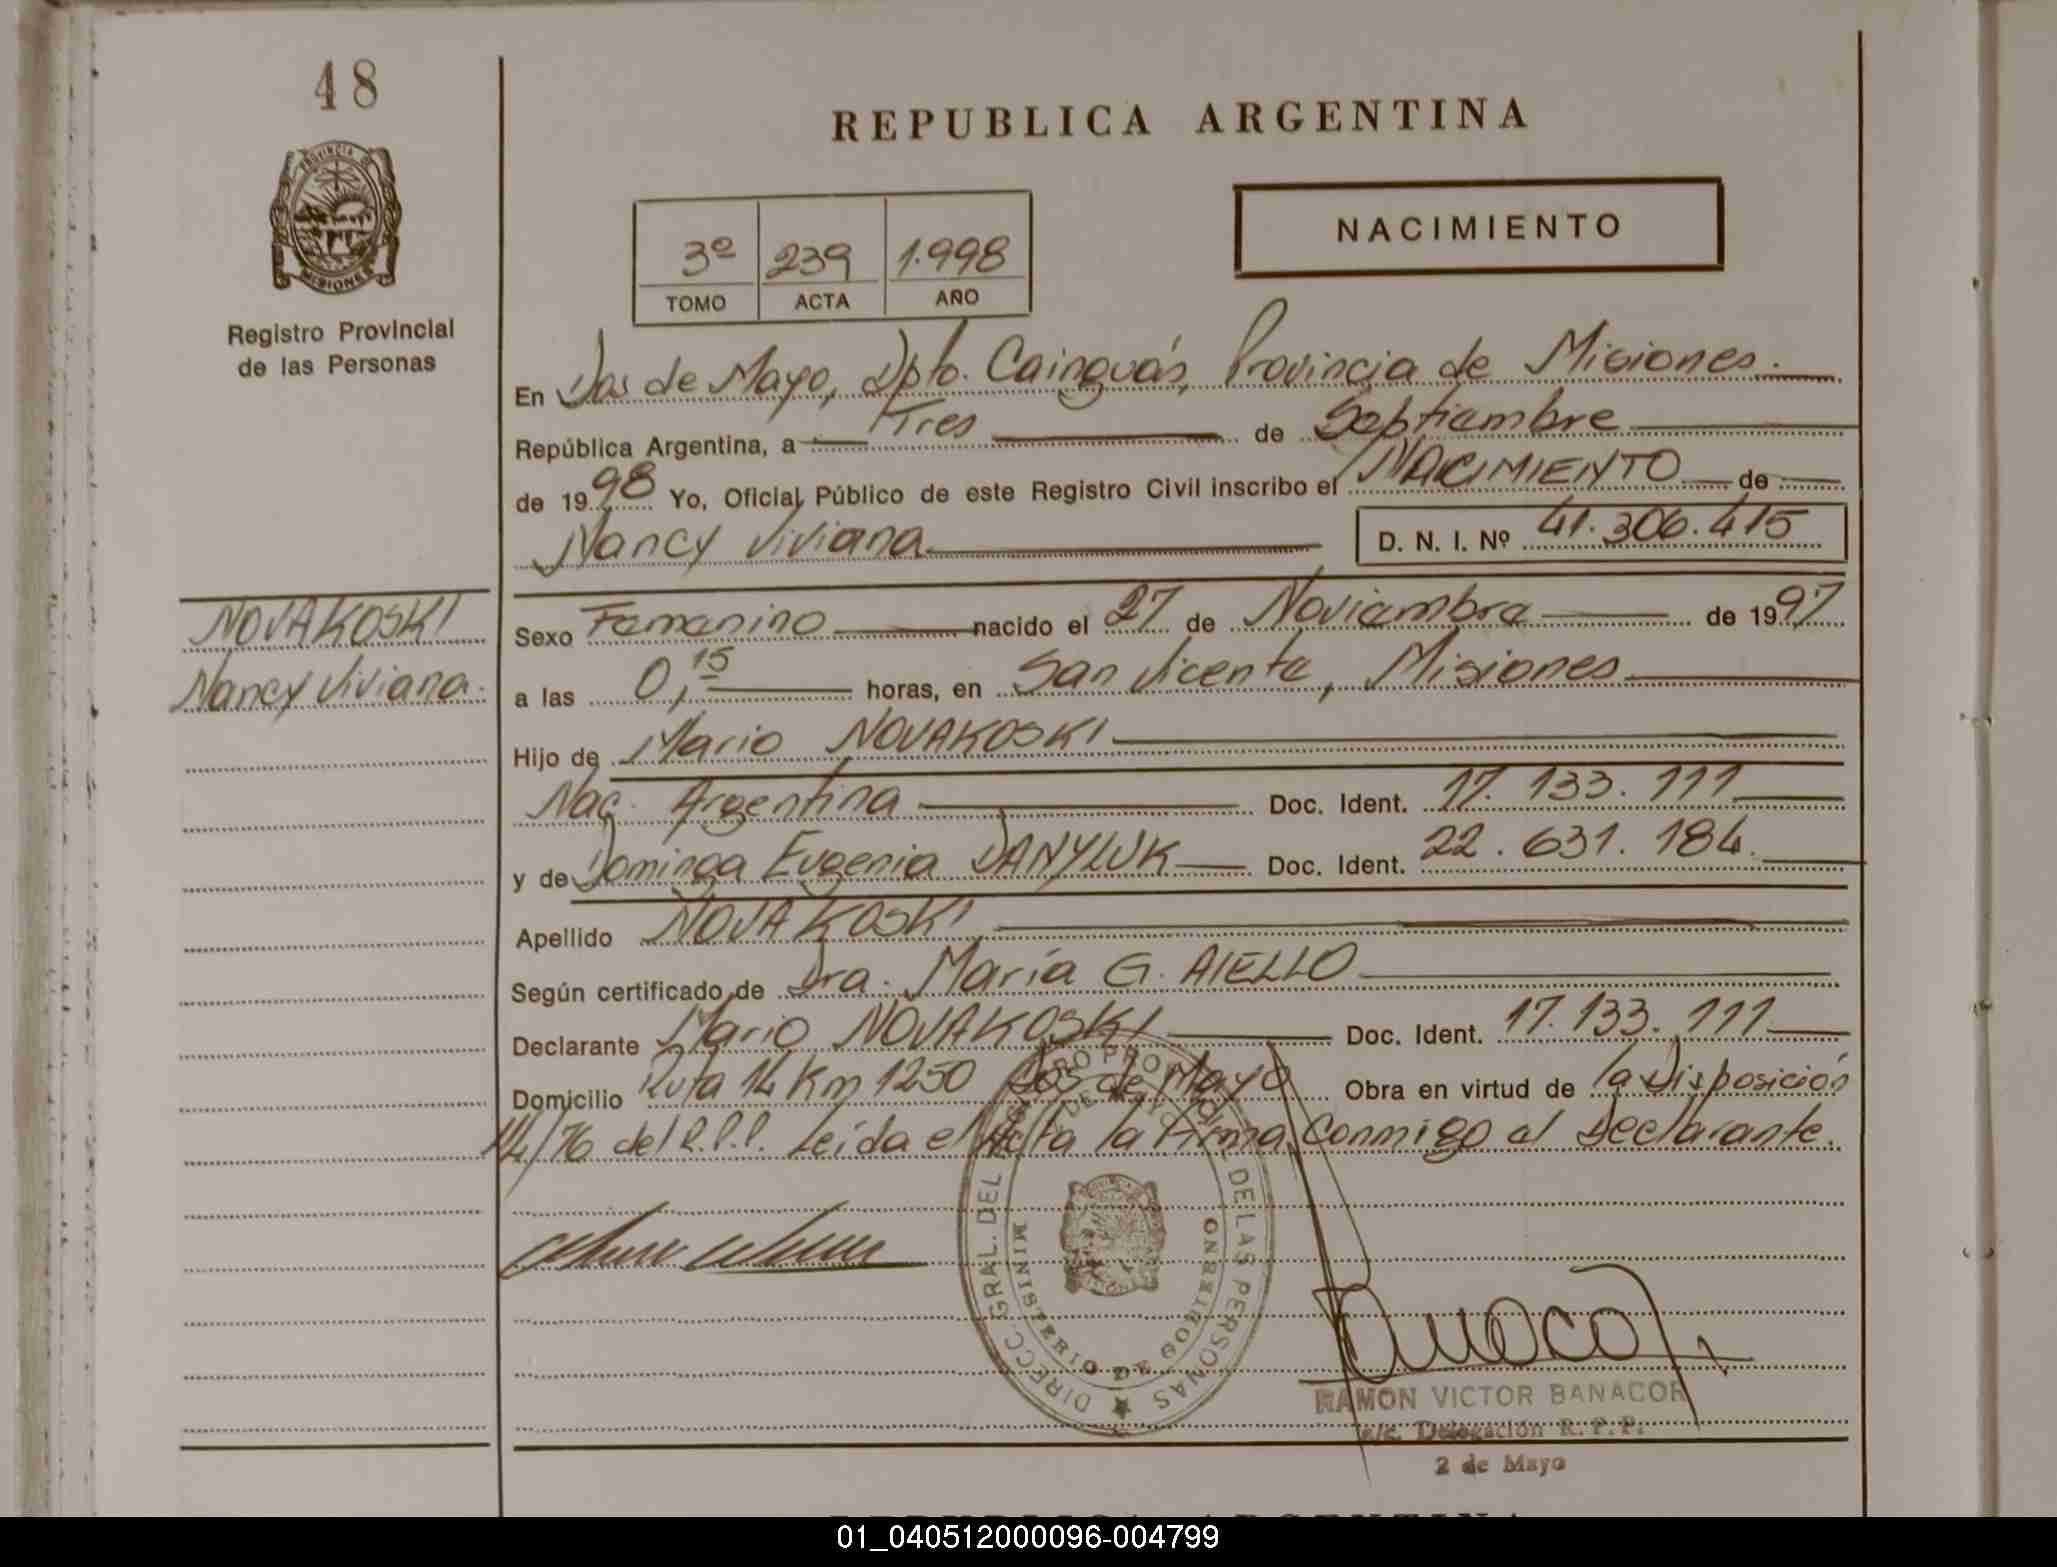 48
PROVINCIA DE
MISIONES
Registro Provincial
de las Personas
NOVAKOSKI
Nancy Viviana.
REPUBLICA ARGENTINA
3º 239 1.998
TOMO ACTA AÑO
NACIMIENTO
En Dos de Mayo, Dpto. Cainguás, Provincia de Misiones.
República Argentina, a Tres de Septiembre
de 1998 Yo, Oficial Público de este Registro Civil inscribo el NACIMIENTO de
Nancy Viviana D. N. I. Nº 41.306.415
Sexo Femenino nacido el 27 de Noviembre de 1997
a las 0,15 horas, en San Vicente, Misiones
Hijo de Mario NOVAKOSKI
Nac. Argentina Doc. Ident. 17.133.111
y de Dominga Eugenia DANYLUK Doc. Ident. 22.631.184.
Apellido NOVAKOSKI
Según certificado de Dra. María G. AIELLO
Declarante Mario NOVAKOSKI Doc. Ident. 17.133.111
Domicilio Ruta 14 Km 1250 Dos de Mayo Obra en virtud de la Disposición
14/76 del R.P.P. Leída el Acta la Firma Conmigo el Declarante.
DIRECC. GRAL. DEL DE LAS PERSONAS
MINISTERIO DE GOBIERNO
RAMON VICTOR BANACOR
a/c. Delegación R. P. P.
2 de Mayo
REPUBLICA ARGENTINA
01_040512000096-004799